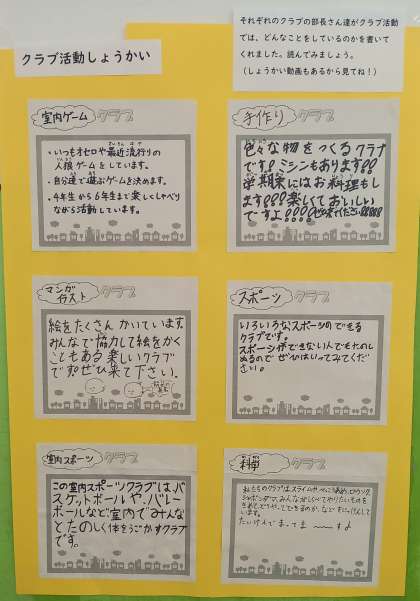 クラブ活動しょうかい
それぞれのクラブの部長さん達がクラブ活動
では、どんなことをしているのかを書いて
くれました。読んでみましょう。
(しょうかい動画もあるから見てね!)
室内ゲームクラブ
・いつもオセロや最近流行りの
人狼ゲームをしています。
・自分達で遊ぶゲームを決めます。
・4年生から6年生まで楽しくしゃべり
ながら活動しています。
手作りクラブ
色々な物をつくるクラブ
です!ミシンもあります!!
学期末にはお料理もし
ます!!!楽しくておいしい
ですよ!!!!
マンガイラストクラブ
絵をたくさんかいています。
みんなで協力して絵をかく
こともある楽しいクラブ
です。ぜひ来て下さい。
スポーツクラブ
いろいろなスポーツのできる
クラブです。
スポーツができない人でもたのし
めるのでぜひはいってみてくだ
さい。
室内スポーツクラブ
この室内スポーツクラブは、バ
スケットボールや、バレー
ボールなど室内でみんな
とたのしく体をうごかすクラブ
です。
科学クラブ
私たちのクラブはスライムや
みんなが
います。